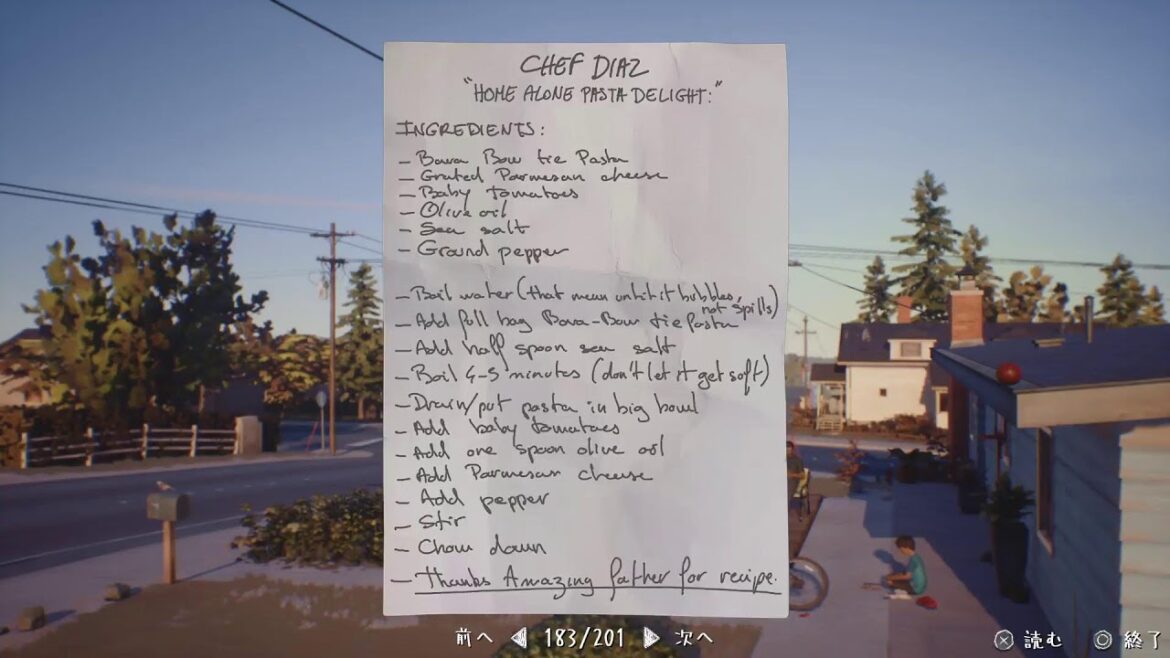 CHEF DIAZ
"HOME ALONE PASTA DELIGHT:"
INGREDIENTS:
- Bava Bow tie Pasta
- Grated Parmesan cheese
- Baby tomatoes
- Olive oil
- Sea salt
- Ground pepper
- Boil water (that mean until it bubbles, not spills)
- Add full bag Bava-Bow tie Pasta
- Add half spoon sea salt
- Boil 4-5 minutes (don't let it get soft)
- Drain/put pasta in big bowl
- Add baby tomatoes
- Add one spoon olive oil
- Add Parmesan cheese
- Add pepper
- Stir
- Chow down
- Thanks Amazing father for recipe.
前へ 183/201 次へ
読む 終了